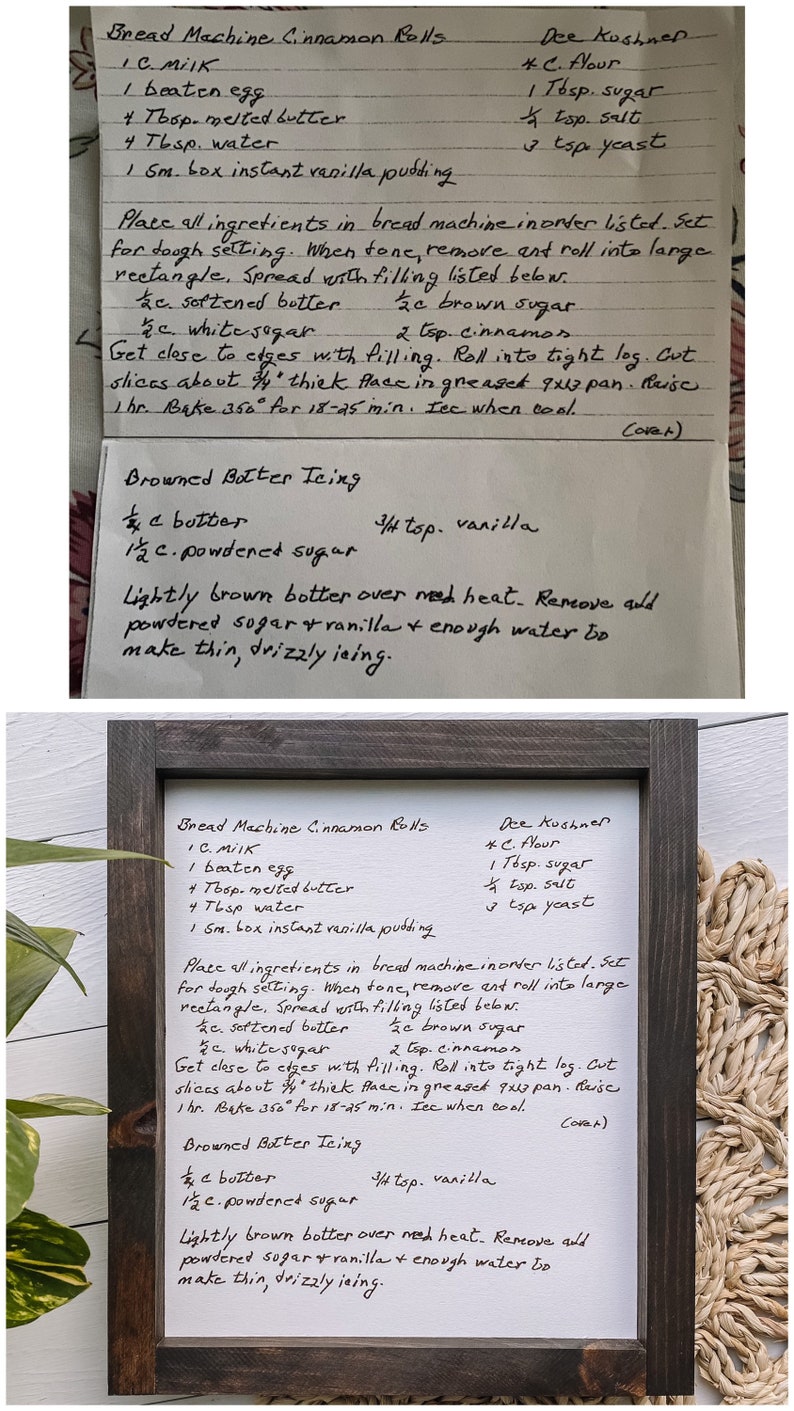 Bread Machine Cinnamon Rolls Dee Kushner
1 C. Milk 4 C. flour
1 beaten egg 1 Tbsp. sugar
4 Tbsp. melted butter ½ tsp. salt
4 Tbsp. water 3 tsp. yeast
1 Sm. box instant vanilla pudding
Place all ingredients in bread machine in order listed. Set
for dough setting. When done, remove and roll into large
rectangle. Spread with filling listed below.
½ c. softened butter ½ c brown sugar
½ c. white sugar 2 tsp. cinnamon
Get close to edges with filling. Roll into tight log. Cut
slices about ¾" thick Place in greased 9x13 pan. Raise
1 hr. Bake 350° for 18-25 min. Ice when cool.
(over)
Browned Butter Icing
¼ c butter 3/4 tsp. vanilla
1½ c. powdered sugar
Lightly brown butter over med heat. Remove add
powdered sugar + vanilla + enough water to
make thin, drizzly icing.
Bread Machine Cinnamon Rolls Dee Kushner
1 C. Milk 4 C. flour
1 beaten egg 1 Tbsp. sugar
4 Tbsp. melted butter ½ tsp. salt
4 Tbsp water 3 tsp. yeast
1 Sm. box instant vanilla pudding
Place all ingredients in bread machine in order listed. Set
for dough setting. When done, remove and roll into large
rectangle. Spread with filling listed below.
½ c. softened butter ½ c brown sugar
½ c. white sugar 2 tsp. cinnamon
Get close to edges with filling. Roll into tight log. Cut
slices about ¾" thick Place in greased 9x13 pan. Raise
1 hr. Bake 350° for 18-25 min. Ice when cool.
(over)
Browned Butter Icing
¼ c butter 3/4 tsp. vanilla
1½ c. powdered sugar
Lightly brown butter over med heat. Remove add
powdered sugar + vanilla + enough water to
make thin, drizzly icing.